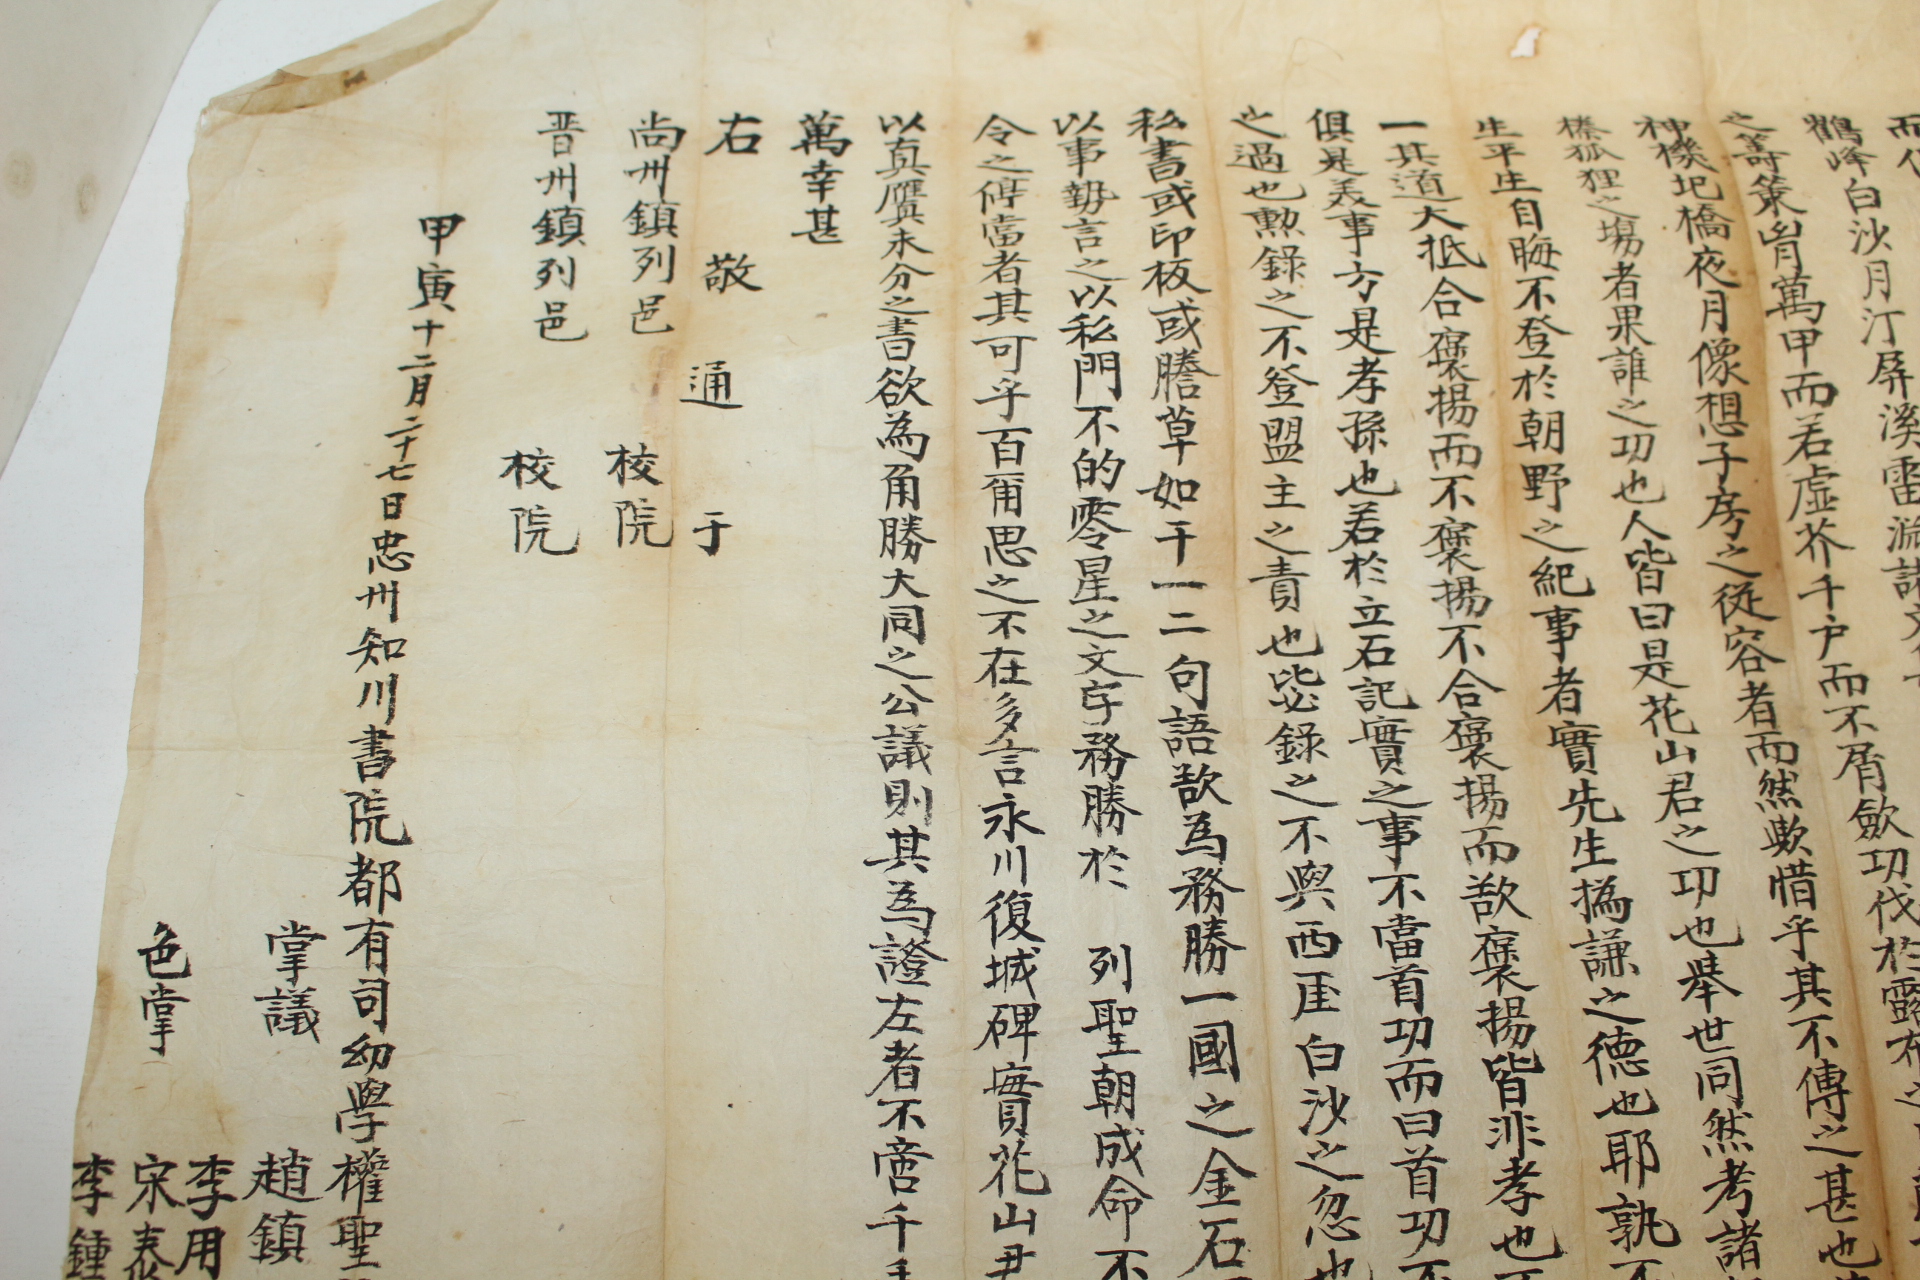 而
鶴峰白沙月汀屛溪雷淵諸文
之籌策胷萬甲而若虛芥千户而不屑歛功伐於露布之
神機圯橋夜月像想子房之從容者而然歟惜乎其不傳之甚也
榛狐狸之場者果誰之功也人皆曰是花山君之功也擧世同然考諸
生平生自晦不登於朝野之紀事者實先生撝謙之德也耶孰不
一其道大抵合褒揚而不褒揚不合褒揚而歆褒揚皆非孝也
俱是羙事方是孝孫也若於立石記實之事不當首功而曰首功不
之過也勳錄之不登盟主之責也毖錄之不與西厓白沙之忽也
私書或印板或謄草如干一二句語歆為務勝一國之金石
以事勢言之以私門不的零星之文字務勝於 列聖朝成命不
令之停當者其可乎百甭思之不在多言永川復城碑實花山尹
以真贋未分之書欲為角勝大同之公議則其為證左者不啻千
萬幸甚
右 敬 通 于
尚州鎮列邑 校院
晋州鎮列邑 校院
甲寅十二月二十七日忠州知川書院都有司幼學權聖
掌議 趙鎮
李用
色掌 宋泰
李鍾